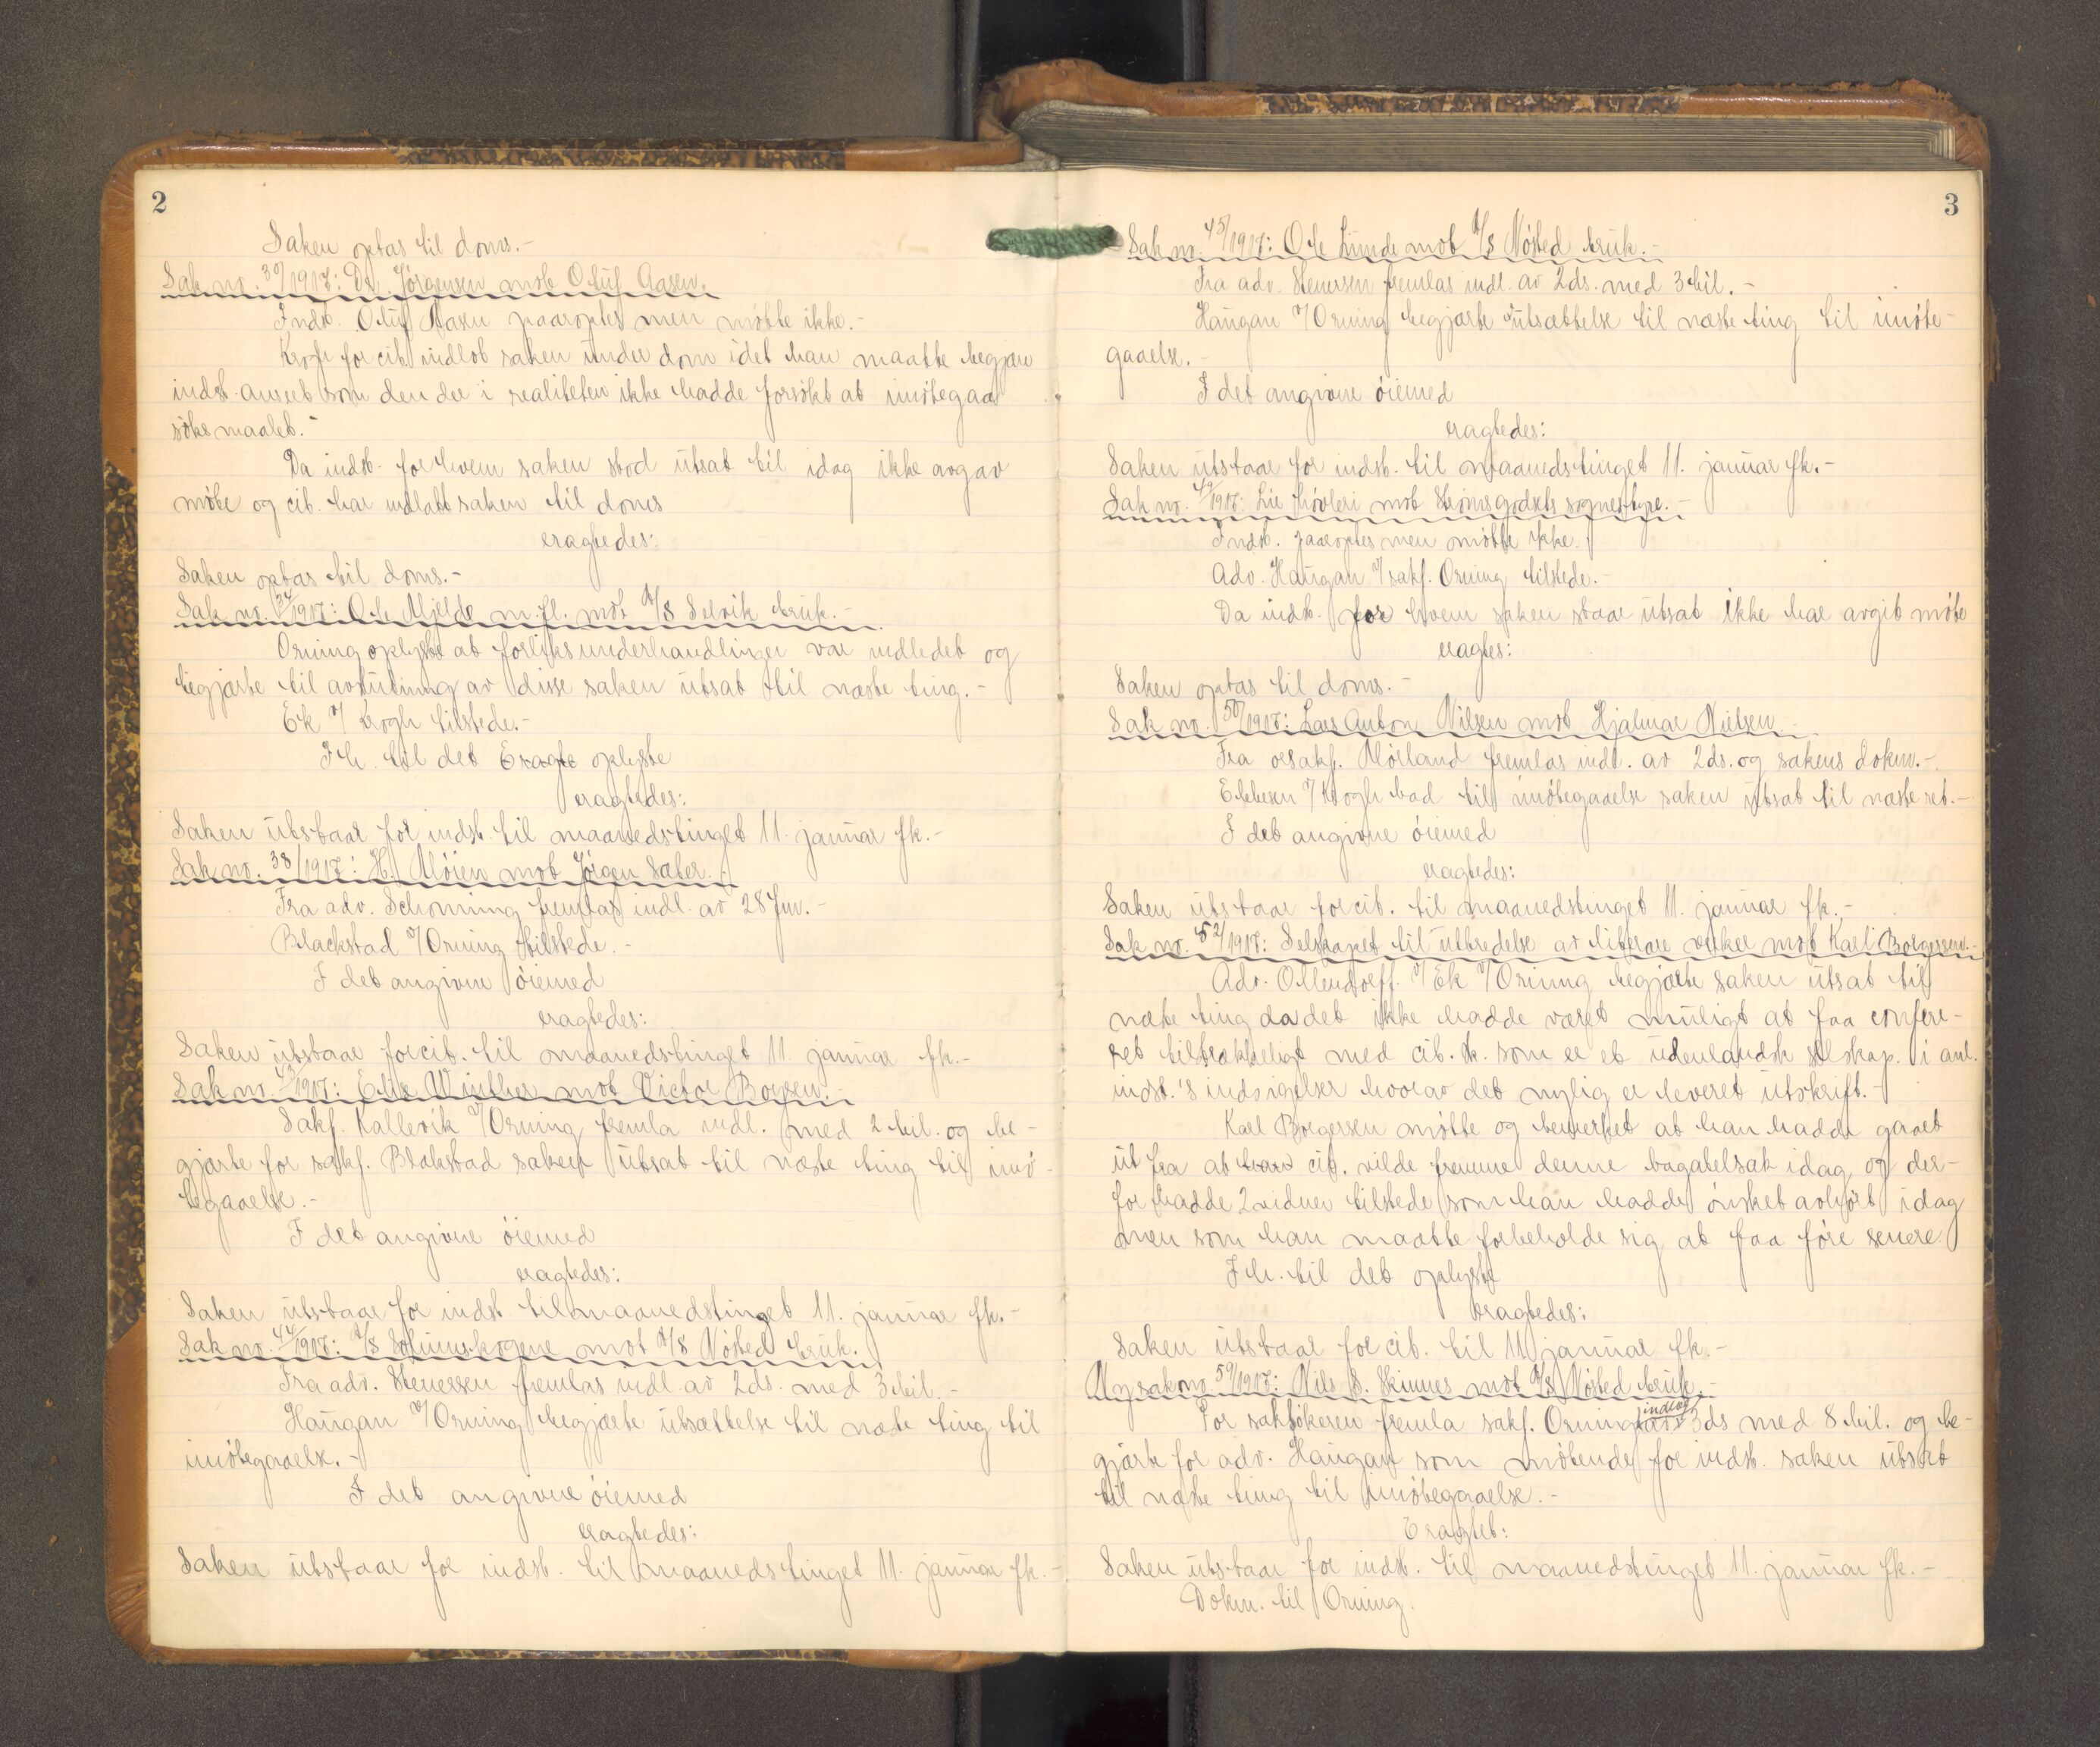 2
Saken optas til doms.-
Sak nr. 30/1917: Dr. Jörgensen mot Oluf Aasen.
Indst. Oluf Aasen paaroptes men møtte ikke.-
Krogh for cit. indlot saken under dom idet han maatte begjære
indst. anseet som den der i realiteten ikke hadde forsøkt at imøtegaa
søksmaalet.-
Da indst. for hvem saken stod utsat til idag ikke avgav
møte og cit. har indlatt saken til doms
eragtedes:
Saken optas til doms.-
Sak nr. 34/1917: O. Mjelde m. fl. mot A/S Selvik bruk.-
Orning oplyste at forliksunderhandlinger var indledet og
begjærte til avslutning av disse saken utsat til næste ting.-
Ek v/ Krogh tilstede.-
I h. til det Eragte oplyste
eragtedes:
Saken utstaar for indst. til maanedstinget 11. januar fk.-
Sak nr. 38/1917: H. Möien mot Jörgen Sæter.-
Fra adv. Schonning fremlas indl. av 28 Jnv.-
Blackstad v/ Orning tilstede.-
I det angivne öiemed
eragtedes:
Saken utstaar for cit. til maanedstinget 11. januar fk.-
Sak nr. 43/1917: Elise Winther mot Victor Boysen.-
Sakf. Kallevik v/ Orning fremla indl. med 2 bil. og be-
gjærte for sakf. Blakstad saken utsat til næste ting til imö-
tegaaelse.-
I det angivne öiemed
eragtedes:
Saken utstaar for indst. til maanedstinget 11. januar fk.-
Sak nr. 44/1917: A/S Solumskogene mot A/S Nøsted bruk.
Fra adv. Stenersen fremlas indl. av 2ds. med 3 bil.-
Haugan v/ Orning begjærte utsættelse til næste ting til
imötegaaelse.-
I det angivne öiemed
eragtedes:
Saken utstaar for indst. til maanedstinget 11. januar fk.-
3
Sak nr. 45/1917: Ole Lunde mot A/S Nøsted bruk.-
Fra adv. Stenersen fremlas indl. av 2ds. med 3 bil.-
Haugan v/ Orning begjærte utsættelse til næste ting til imöte-
gaaelse.-
I det angivne öiemed
eragtedes:
Saken utstaar for indst. til maanedstinget 11. januar fk.-
Sak nr. 49/1917: Lie høvleri mot Strømsgodsets sognestyre.-
Indst. paaroptes men møtte ikke.
Adv. Haugan v/ sakf. Orning tilstede.-
Da indst. for hvem saken staar utsat ikke har avgit møte
eragtes:
Saken optas til doms.-
Sak nr. 50/1917: Lars Anton Nilsen mot Hjalmar Nielsen.
Fra orsakf. Mörland fremlas indl. av 2ds. og sakens dokm.-
Ebbesen v/ Krogh bad til imötegaaelse saken utsat til næste ret.-
I det angivne öiemed
eragtedes:
Saken utstaar for cit. til maanedstinget 11. januar fk.-
Sak nr. 52/1917: Selskapet til utbredelse av literære verker mot Karl Borgersen.-
Adv. Ollendorff v/ Ek v/ Orning begjærte saken utsat til
næste ting da det ikke hadde været muligt at faa confere-
ret tilstrækkeligt med cit. sk. som er et udenlandsk selskap. i anl.
indst.'s indsigelser hvorav det nylig er leveret utskrift.-
Karl Borgersen møtte og bemerket at han hadde gaaet
ut fra at cit. vilde fremme denne bagatelsak idag og der-
for hadde 2 vidner tilstede som han hadde ønsket avhørt idag
men som han maatte forbeholde sig at faa føre senere
I h. til det oplyste
eragtedes:
Saken utstaar for cit. til 11 januar fk.-
Ny sak nr. 59/1917: Nils S. Skinnes mot A/S Nøsted bruk.-
For saksökeren fremla sakf. Orning indlæg av 3ds med 8 bil. og be-
gjærte for adv. Haugan som møtende for indst. saken utsat
til næste ting til imötegaaelse.-
Eragtet:
Saken utstaar for indst. til maanedstinget 11. januar fk.-
Dokm. til Orning.